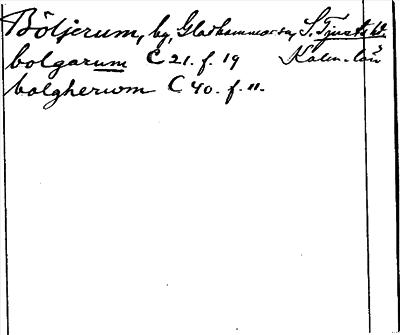 Böljerum, by, Gladhammars sn, S. Tjusts hd.
bolgarum C 21. f. 19 Kalm. län
bolgherum C 40. f. 11.